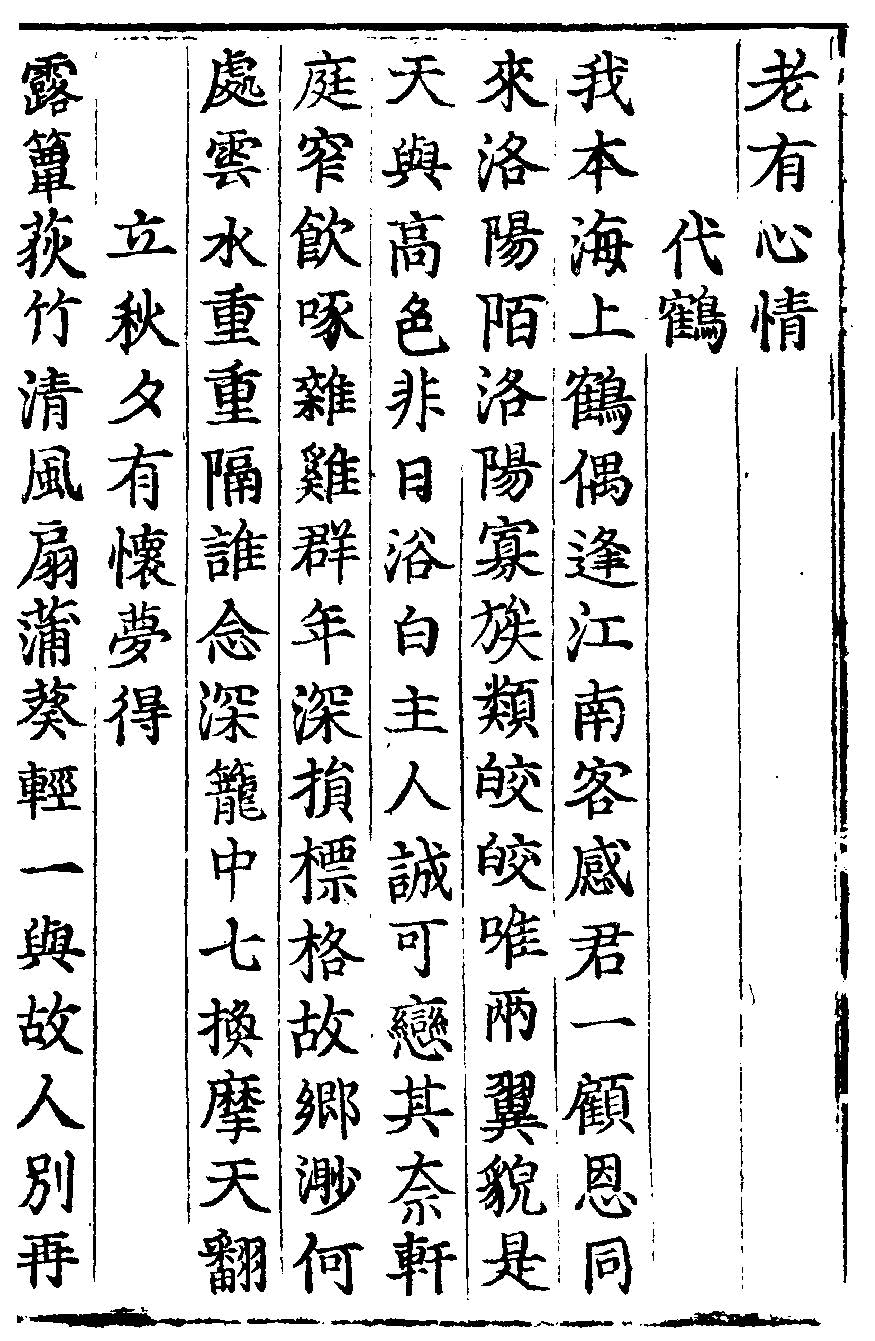 老有心情
代鶴
我本海上鶴偶逢江南客感君一顧恩同
來洛陽陌洛陽寡族類皎皎唯兩翼貌是
天與高色非日浴白主人誠可戀其奈軒
庭窄飲啄雜雞群年深損標格故鄉渺何
處雲水重重隔誰念深籠中七換摩天翮
立秋夕有懷夢得
露簟荻竹清風扇蒲葵輕一與故人別再